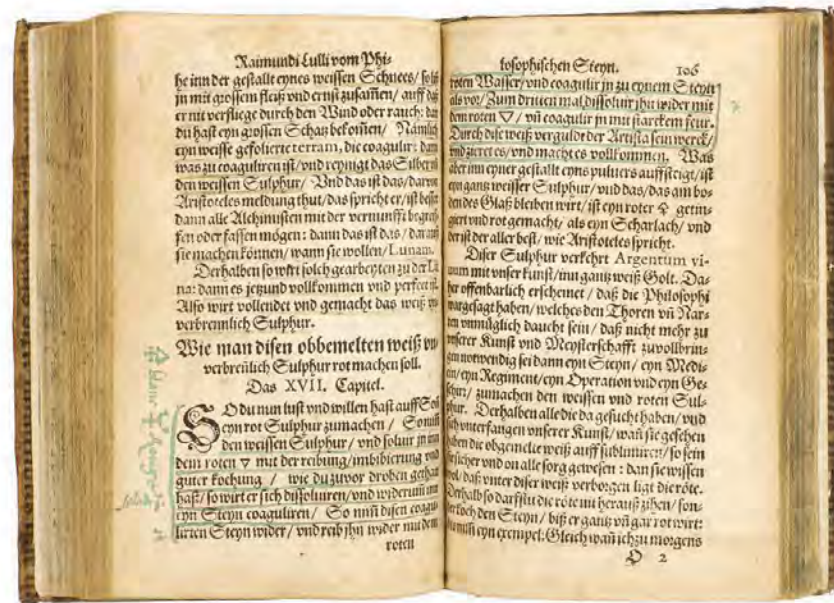 Raimundi Lulli vom Phi-
he inn der gestallt eynes weissen Schnees/ so liß
jn mit grossem fleiß vnd ernst zusam̃en/ auff daß
er nit verfliege durch den Wind oder rauch: dañ
du hast eyn grossen Schatz bekom̃en/ Nämlich
eyn weisse gefolierte terram, die coagulir: dann
was zu coaguliren ist/ vnd reynigt das Silber
den weissen Sulphur/ Vnd das ist das/ daruon
Aristoteles meldung thut/ das spricht er/ ist besser
dann alle Alchimisten mit der vernunfft begreif-
fen oder fassen mögen: dann das ist das/ darauß
sie machen können/ wann sie wollen/ Lunam.
Derhalben so wirt solch gearbeyten zu der Lu-
na: dann es jetzund vollkommen vnd perfect ist.
Also wirt vollendet vnd gemacht das weiß vn-
verbrennlich Sulphur.
Wie man disen obbemelten weiß vn-
verbreñlich Sulphur rot machen soll.
Das XVII. Capitel.
SO du nun lust vnd willen hast auff
eyn rot Sulphur zumachen/ So nim̃
den weissen Sulphur/ vnd soluir jn inn
dem roten ▽ mit der reibung/ imbibierung vnd
guter kochung/ wie du zuvor droben gethan
hast/ so wirt er sich dissoluiren/ vnd widerum̃ inn
eyn Steyn coaguliren/ So nim̃ disen coagu-
lirten Steyn wider/ vnd reib jhn wider mit dem
roten
losophischen Steyn. 106
roten Wasser/ vnd coagulir jn zu eynem Steyn
als vor/ Zum dritten mal dissoluir jhn wider mit
dem roten ▽/ vñ coagulir jn mit starckem feur.
Durch dise weiß verguldt der Artista sein werck/
vnd zieret es/ vnd macht es vollkommen. Was
aber inn eyner gestallt eyns puluers auffsteigt/ ist
eyn gantz weisser Sulphur/ vnd das/ das am bo-
den des Glaß bleiben wirt/ ist eyn roter 🜍 getin-
giert vnd rot gemacht/ als eyn Scharlach/ vnd
der ist der aller best/ wie Aristoteles spricht.
Diser Sulphur verkehrt Argentum vi-
uum mit vnser kunst/ inn gantz weiß Golt. Da-
her offenbarlich erscheinet/ daß die Philosophi
wargesagt haben/ welches den Thoren vñ Nar-
ren vnmüglich daucht sein/ daß nicht mehr zu
vnserer Kunst vnd Meysterschafft zuvollbrin-
gen notwendig sei dann eyn Steyn/ eyn Medi-
cin/ eyn Regiment/ eyn Operation vnd eyn Ge-
schirr/ zumachen den weissen vnd roten Sul-
phur. Derhalben alle die da gesucht haben/ vnd
sich vnterfangen vnserer Kunst/ wañ sie gesehen
haben die obgemelte weiß auff sublimirn/ so sein
sicher vnd on alle sorg gewesen: dan sie wissen
wol/ daß vnter diser weiß verborgen ligt die röte.
Derhalb so darffstu die röte nit herauß zihen/ son-
der koch den Steyn/ biß er gantz vñ gar rot wirt:
nim̃ eyn exempel: Gleich wañ ich zu morgens
O 2